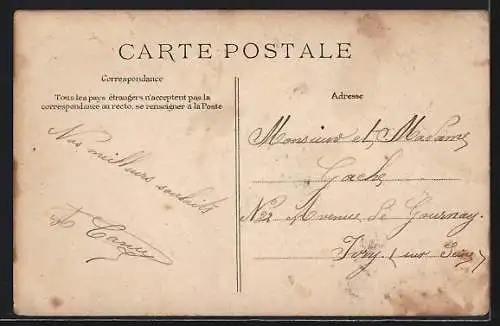 CARTE POSTALE
Correspondance
Tous les pays étrangers n'acceptent pas la
correspondance au recto, se renseigner à la Poste
Nos meilleurs souhaits
Adresse
Monsieur et Madame
Gache
N° 22 Avenue de Gournay
Ivry (sur Seine)